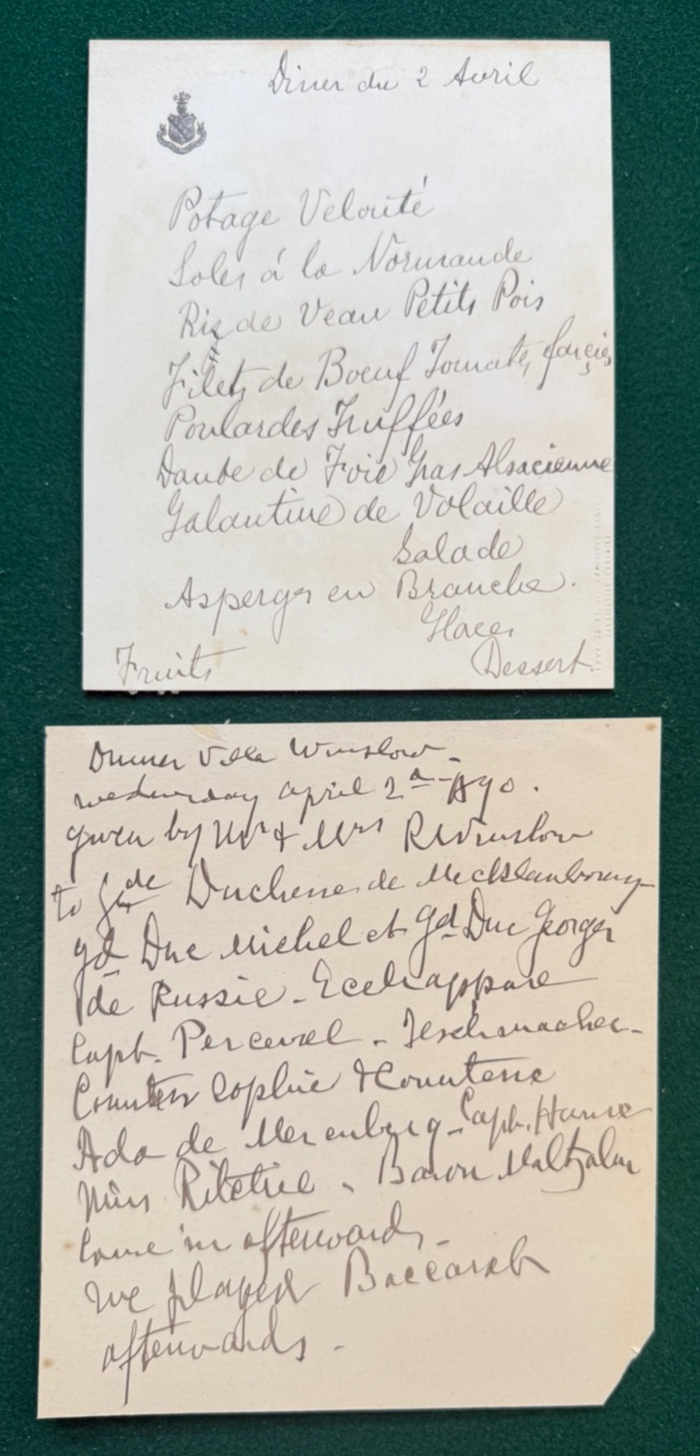 Diner du 2 Avril
Potage Velouté
Soles á la Normande
Riz de Veau Petits Pois
Filets de Boeuf Tomates farcies
Poulardes Truffées
Daube de Foie Gras Alsacienne
Galantine de Volaille
Salade
Asperges en Branche.
Glaces
Fruits Dessert
Dinner Villa Winslow -
Wednesday April 2d - 90.
given by Mr & Mrs R Winslow
to Gde Duchesse de Mecklenbourg
gd Duc Michel et Gd Duc Georges
de Russie -
Capt. Perceval - Teschmacher -
Countess Sophie & Countesse
Ada de Merenberg - Capt. Hume
Miss Ritchie - Baron Maltzahn
came in afterwards -
we played Baccarat
afterwards -